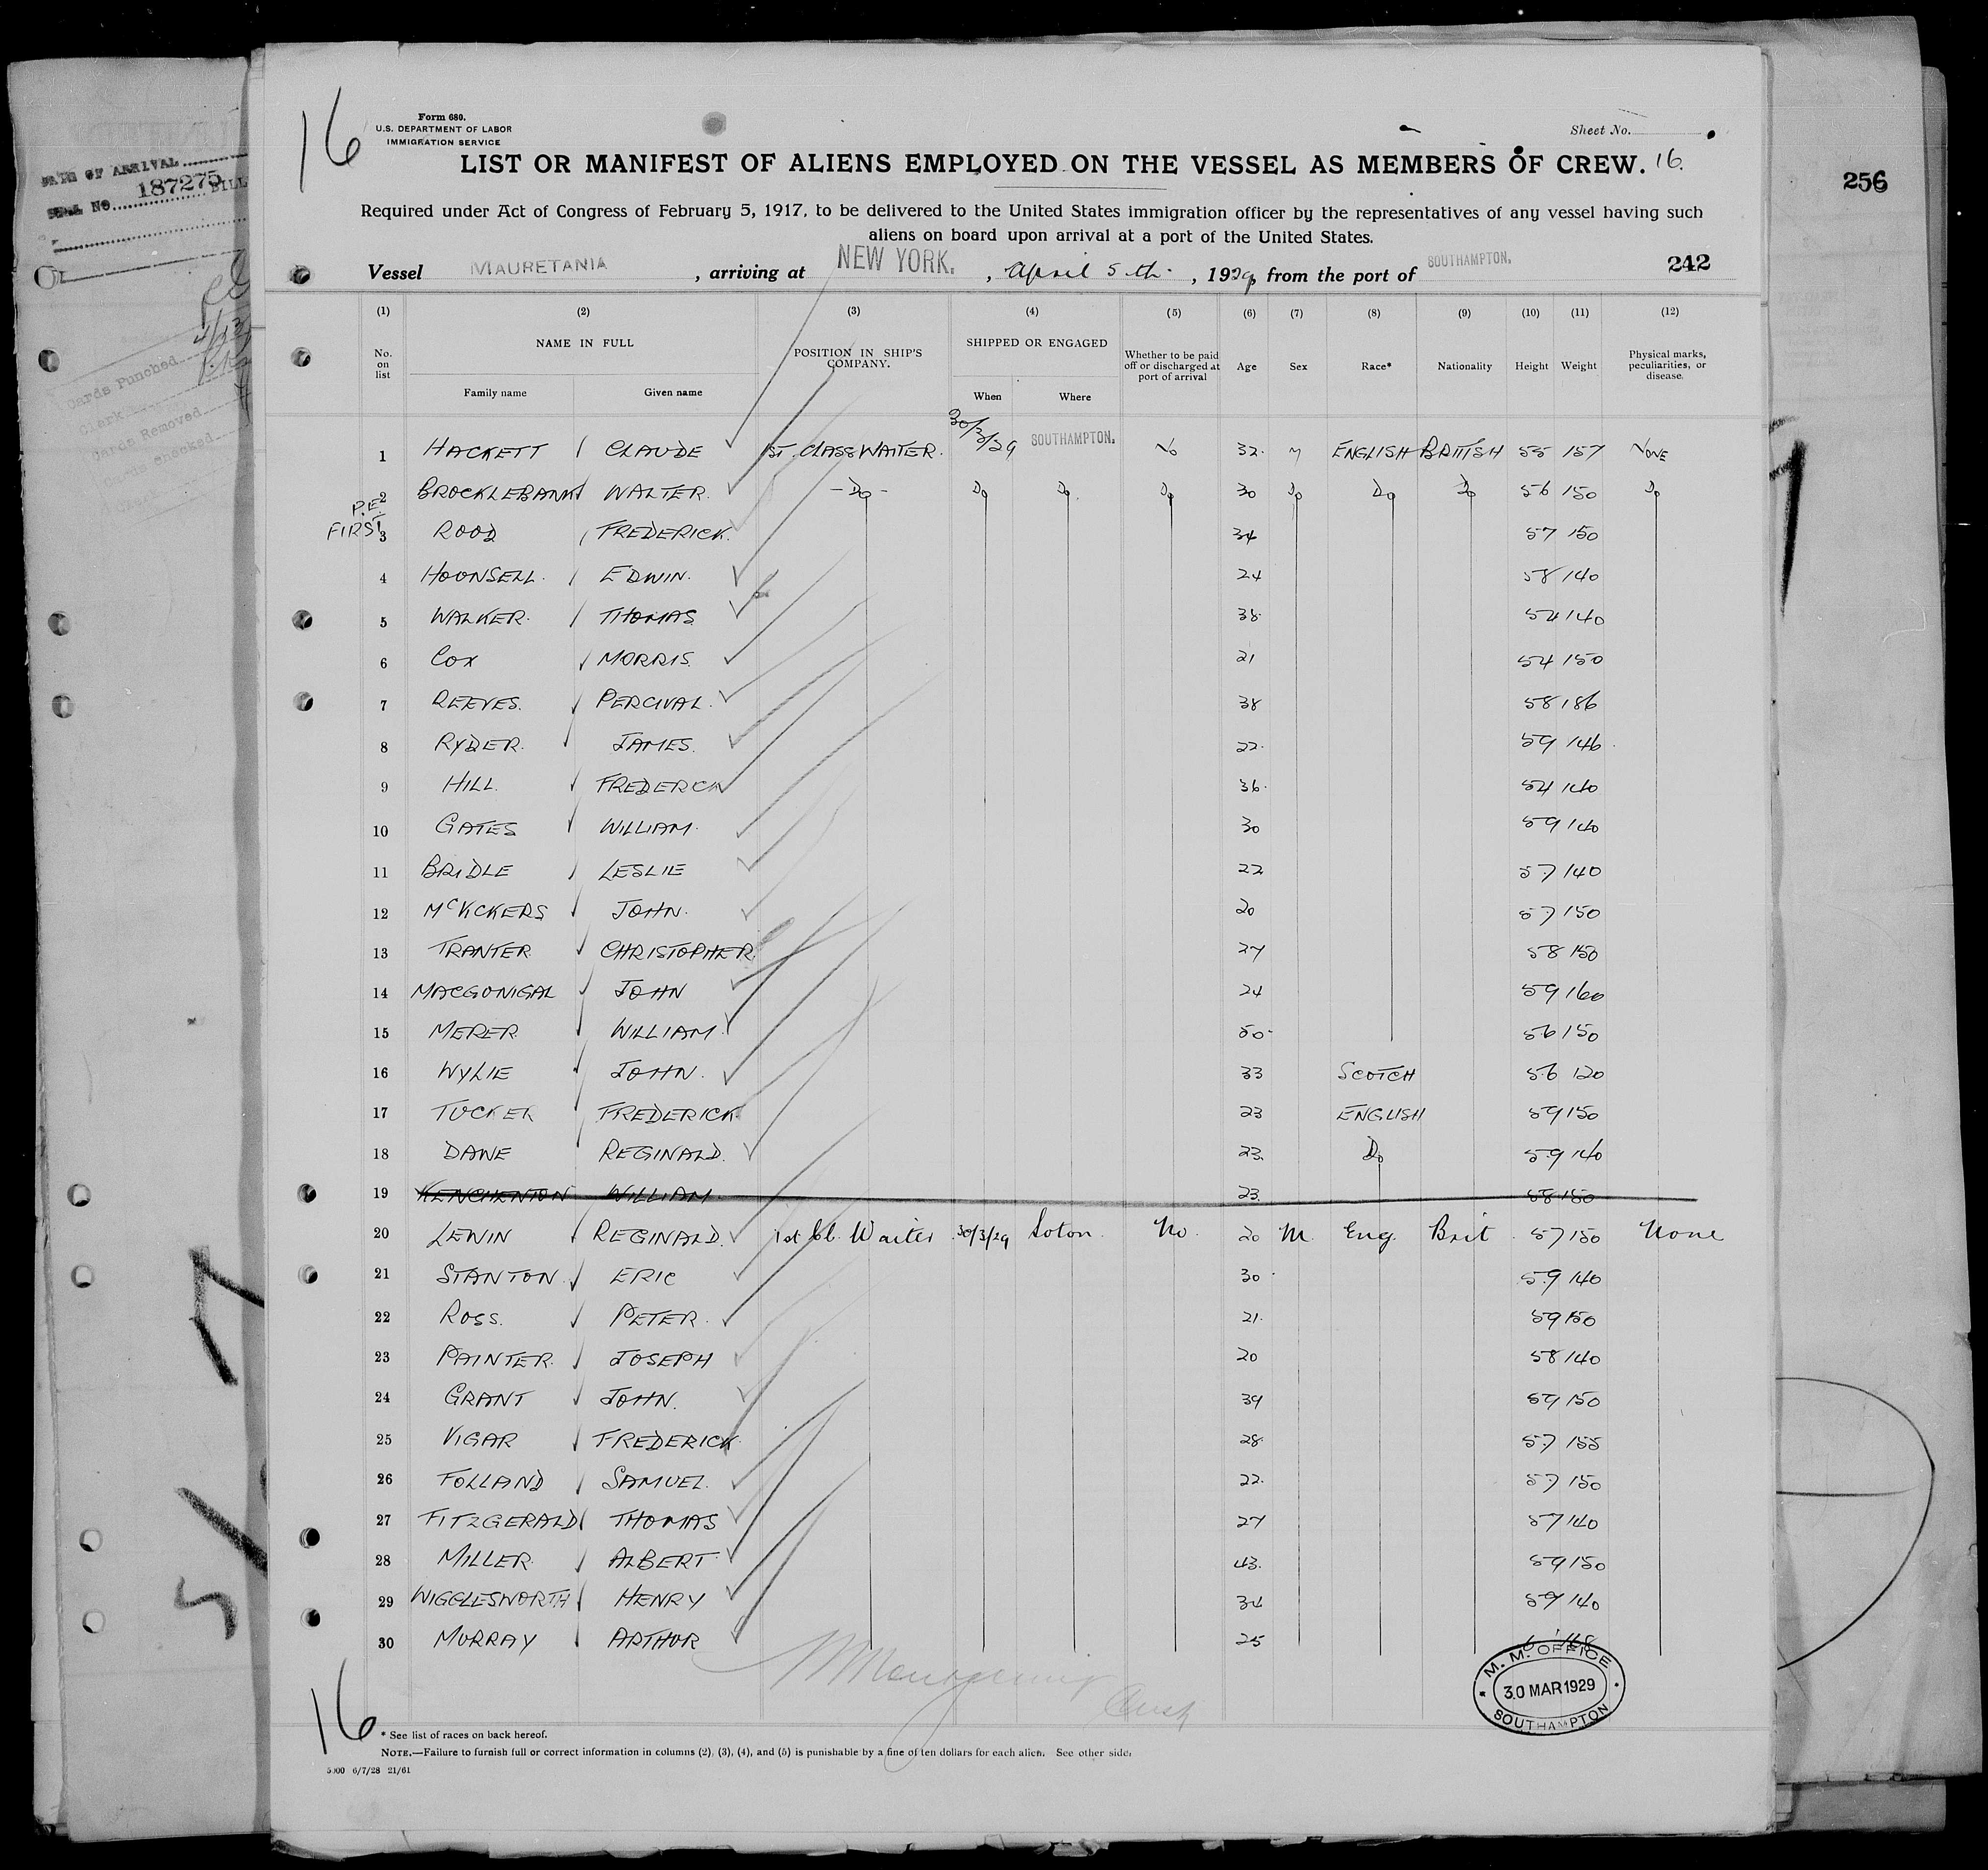 16
Form 680.
U.S. DEPARTMENT OF LABOR
IMMIGRATION SERVICE
Sheet No.
LIST OR MANIFEST OF ALIENS EMPLOYED ON THE VESSEL AS MEMBERS OF CREW. 16.
Required under Act of Congress of February 5, 1917, to be delivered to the United States immigration officer by the representatives of any vessel having such
aliens on board upon arrival at a port of the United States.
Vessel MAURETANIA, arriving at NEW YORK., April 5th., 1929, from the port of SOUTHAMPTON. 242
256
DATE OF ARRIVAL
187275
Cards Punched
Clerk
Cards Removed
Checked
(1) (2) (3) (4) (5) (6) (7) (8) (9) (10) (11) (12)
No. on list NAME IN FULL POSITION IN SHIP'S COMPANY. SHIPPED OR ENGAGED Whether to be paid off or discharged at port of arrival Age Sex Race* Nationality Height Weight Physical marks, peculiarities, or disease.
Family name Given name When Where
1 HACKETT CLAUDE 1ST. CLASS WAITER. 30/3/29 SOUTHAMPTON. No 32. M ENGLISH BRITISH 55 157 NONE
2 BROCKLEBANK WALTER. - Do - Do Do Do 30 Do Do Do 56 150 Do
P.E. FIRST! 3 ROOD FREDERICK. 34 57 150
4 HOUNSELL. EDWIN. 24 58 140
5 WALKER. THOMAS 38. 54 140
6 COX MORRIS. 21 54 150
7 REEVES. PERCIVAL. 38 58 186
8 RYDER. JAMES. 22. 59 146.
9 HILL. FREDERICK 36. 54 140
10 GATES WILLIAM. 30 59 140
11 BRIDLE LESLIE 22 57 140
12 McVCKERS JOHN. 20 57 150
13 TRANTER. CHRISTOPHER. 27 58 150
14 MACGONIGAL JOHN 24 59 160
15 MERER. WILLIAM. 50. 56 150
16 WYLIE JOHN. 33 SCOTCH 56 120
17 TUCKER FREDERICK. 23 ENGLISH 59 150
18 DAWE REGINALD. 23. Do 59 140
19 KENCHENTON WILLIAM. 23. 58 150
20 LEWIN REGINALD. 1st Cl. Waiter 30/3/29 Soton. No. 20 M. Eng. Brit. 57 150 None
21 STANTON. ERIC 30 59 140
22 ROSS. PETER. 21. 59 150
23 PAINTER. JOSEPH 20 58 140
24 GRANT JOHN. 39 59 150
25 VIGAR FREDERICK. 28. 57 155
26 FOLLAND SAMUEL. 22. 57 150
27 FITZGERALD THOMAS 27 57 140
28 MILLER. ALBERT. 43. 59 150
29 WIGGLESWORTH HENRY 34 59 140
30 MURRAY ARTHUR 25 6' 168
M. M. OFFICE
30 MAR 1929
SOUTHAMPTON
16
* See list of races on back hereof.
NOTE.—Failure to furnish full or correct information in columns (2), (3), (4), and (5) is punishable by a fine of ten dollars for each alien. See other side.
5000 6/7/28 21/61